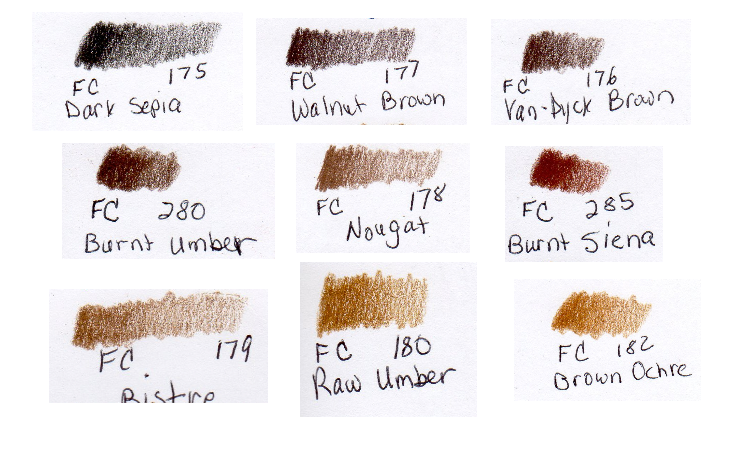 FC 175
Dark Sepia
FC 177
Walnut Brown
FC 176
Van-Dyck Brown
FC 280
Burnt Umber
FC 178
Nougat
FC 285
Burnt Siena
FC 179
Bistre
FC 180
Raw Umber
FC 182
Brown Ochre